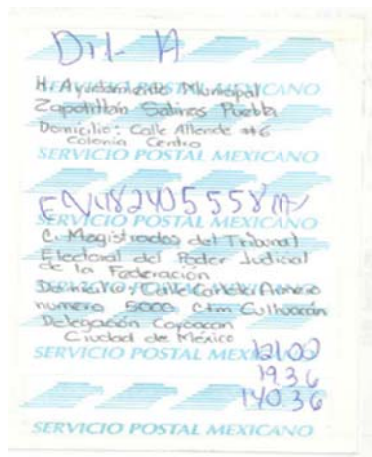 DH- 19
H. Ayuntamiento Municipal
Zapotitlán Salinas Puebla
Domicilio: Calle Allende #6
Colonia Centro
SERVICIO POSTAL MEXICANO
SERVICIO POSTAL MEXICANO
C. Magistrados del Tribunal
Electoral del Poder Judicial
de la Federación
Domicilio: Calle Carlota Armero
numero 5000 Ctm Culhuacán
Delegación Coyoacan
Ciudad de México
SERVICIO POSTAL MEXICANO
121.00
19.36
140.36
SERVICIO POSTAL MEXICANO